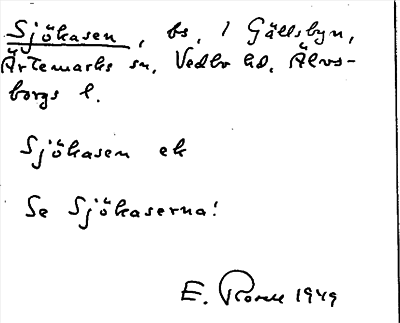 Sjökasen, bs. / Gällsbyn,
Ärtemarks sn, Vedbo hd, Älvs-
borgs l.
Sjökasen ek
Se Sjökaserna!
E. Rosell 1949